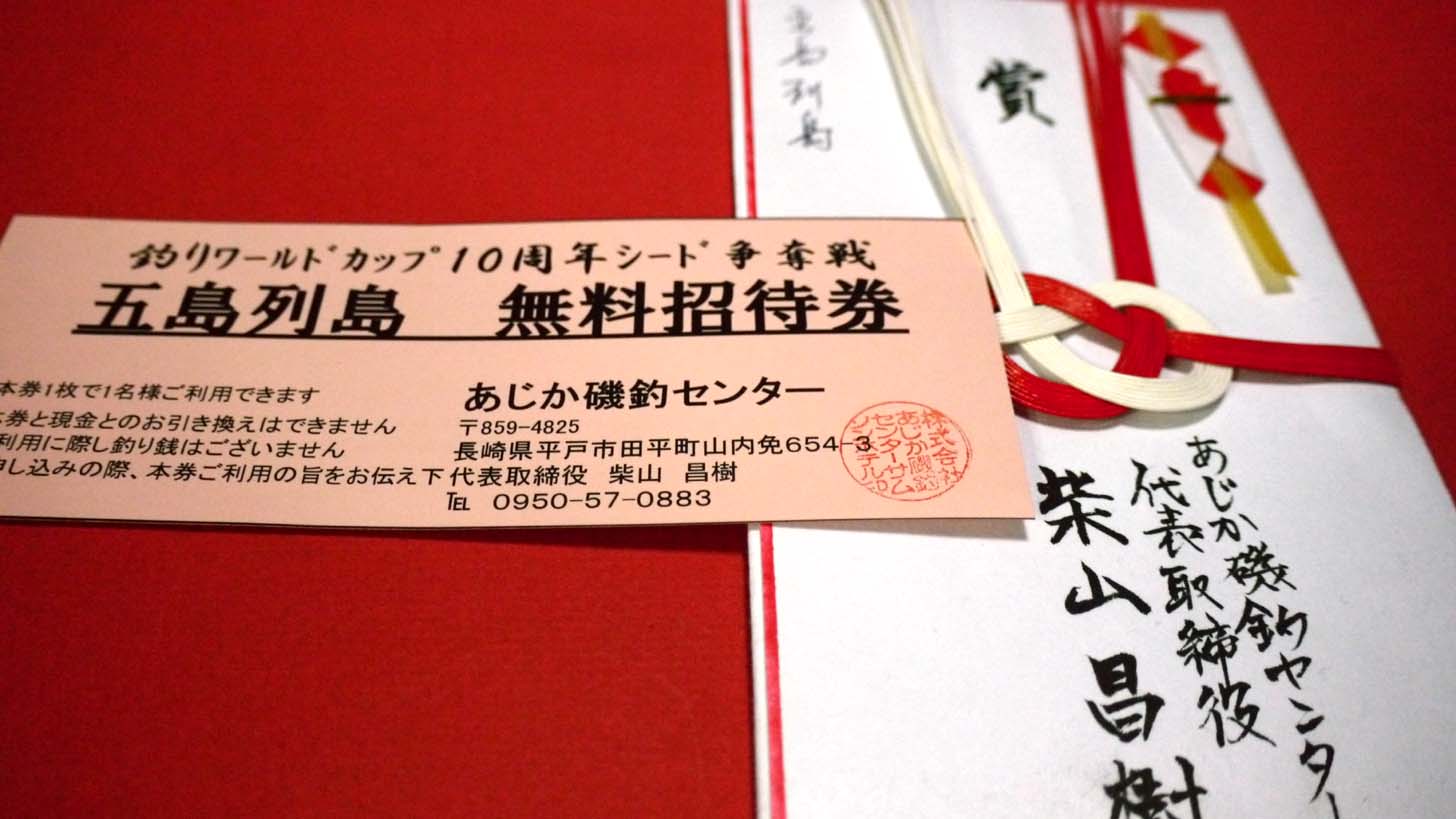 釣りワールドカップ10周年シード争奪戦
五島列島　無料招待券
本券1枚で1名様ご利用できます
券と現金とのお引き換えはできません
利用に際し釣り銭はございません
し込みの際、本券ご利用の旨をお伝え下
あじか磯釣センター
〒859-4825
長崎県平戸市田平町山内免654-3
代表取締役　柴山　昌樹
℡ 0950-57-0883
株式会社
あじか磯釣
センター
賞
五島列島
あじか磯釣センター
代表取締役
柴山昌樹